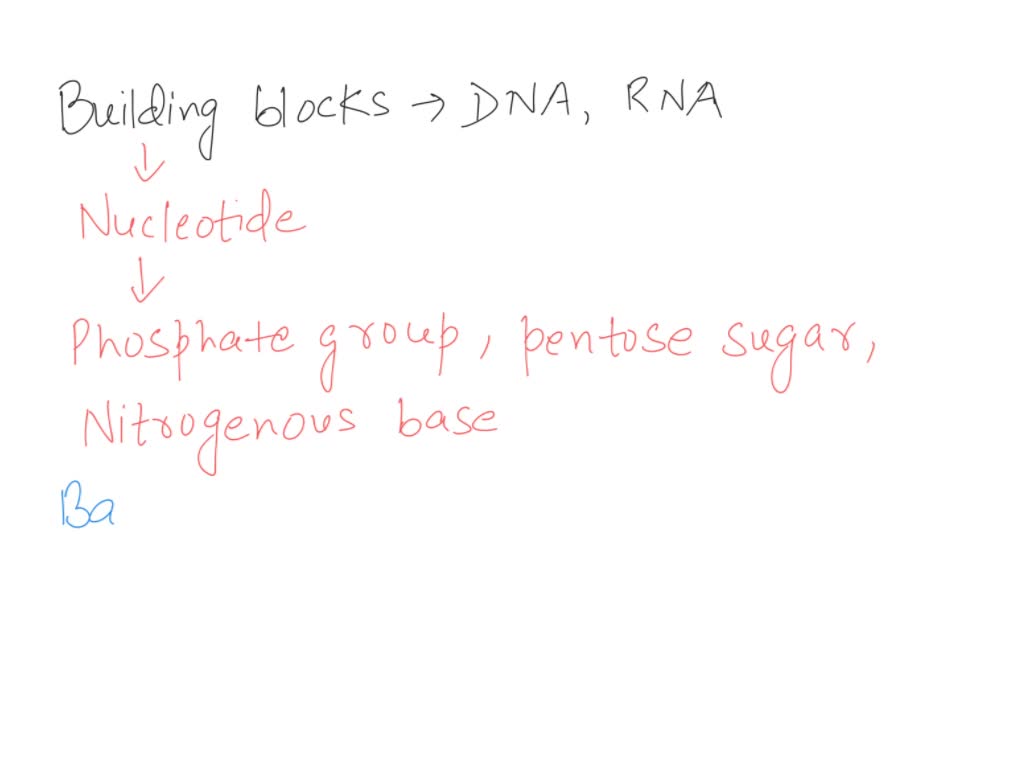 Building blocks → DNA, RNA
↓
Nucleotide
↓
Phosphate group, pentose sugar,
Nitrogenous base
Ba